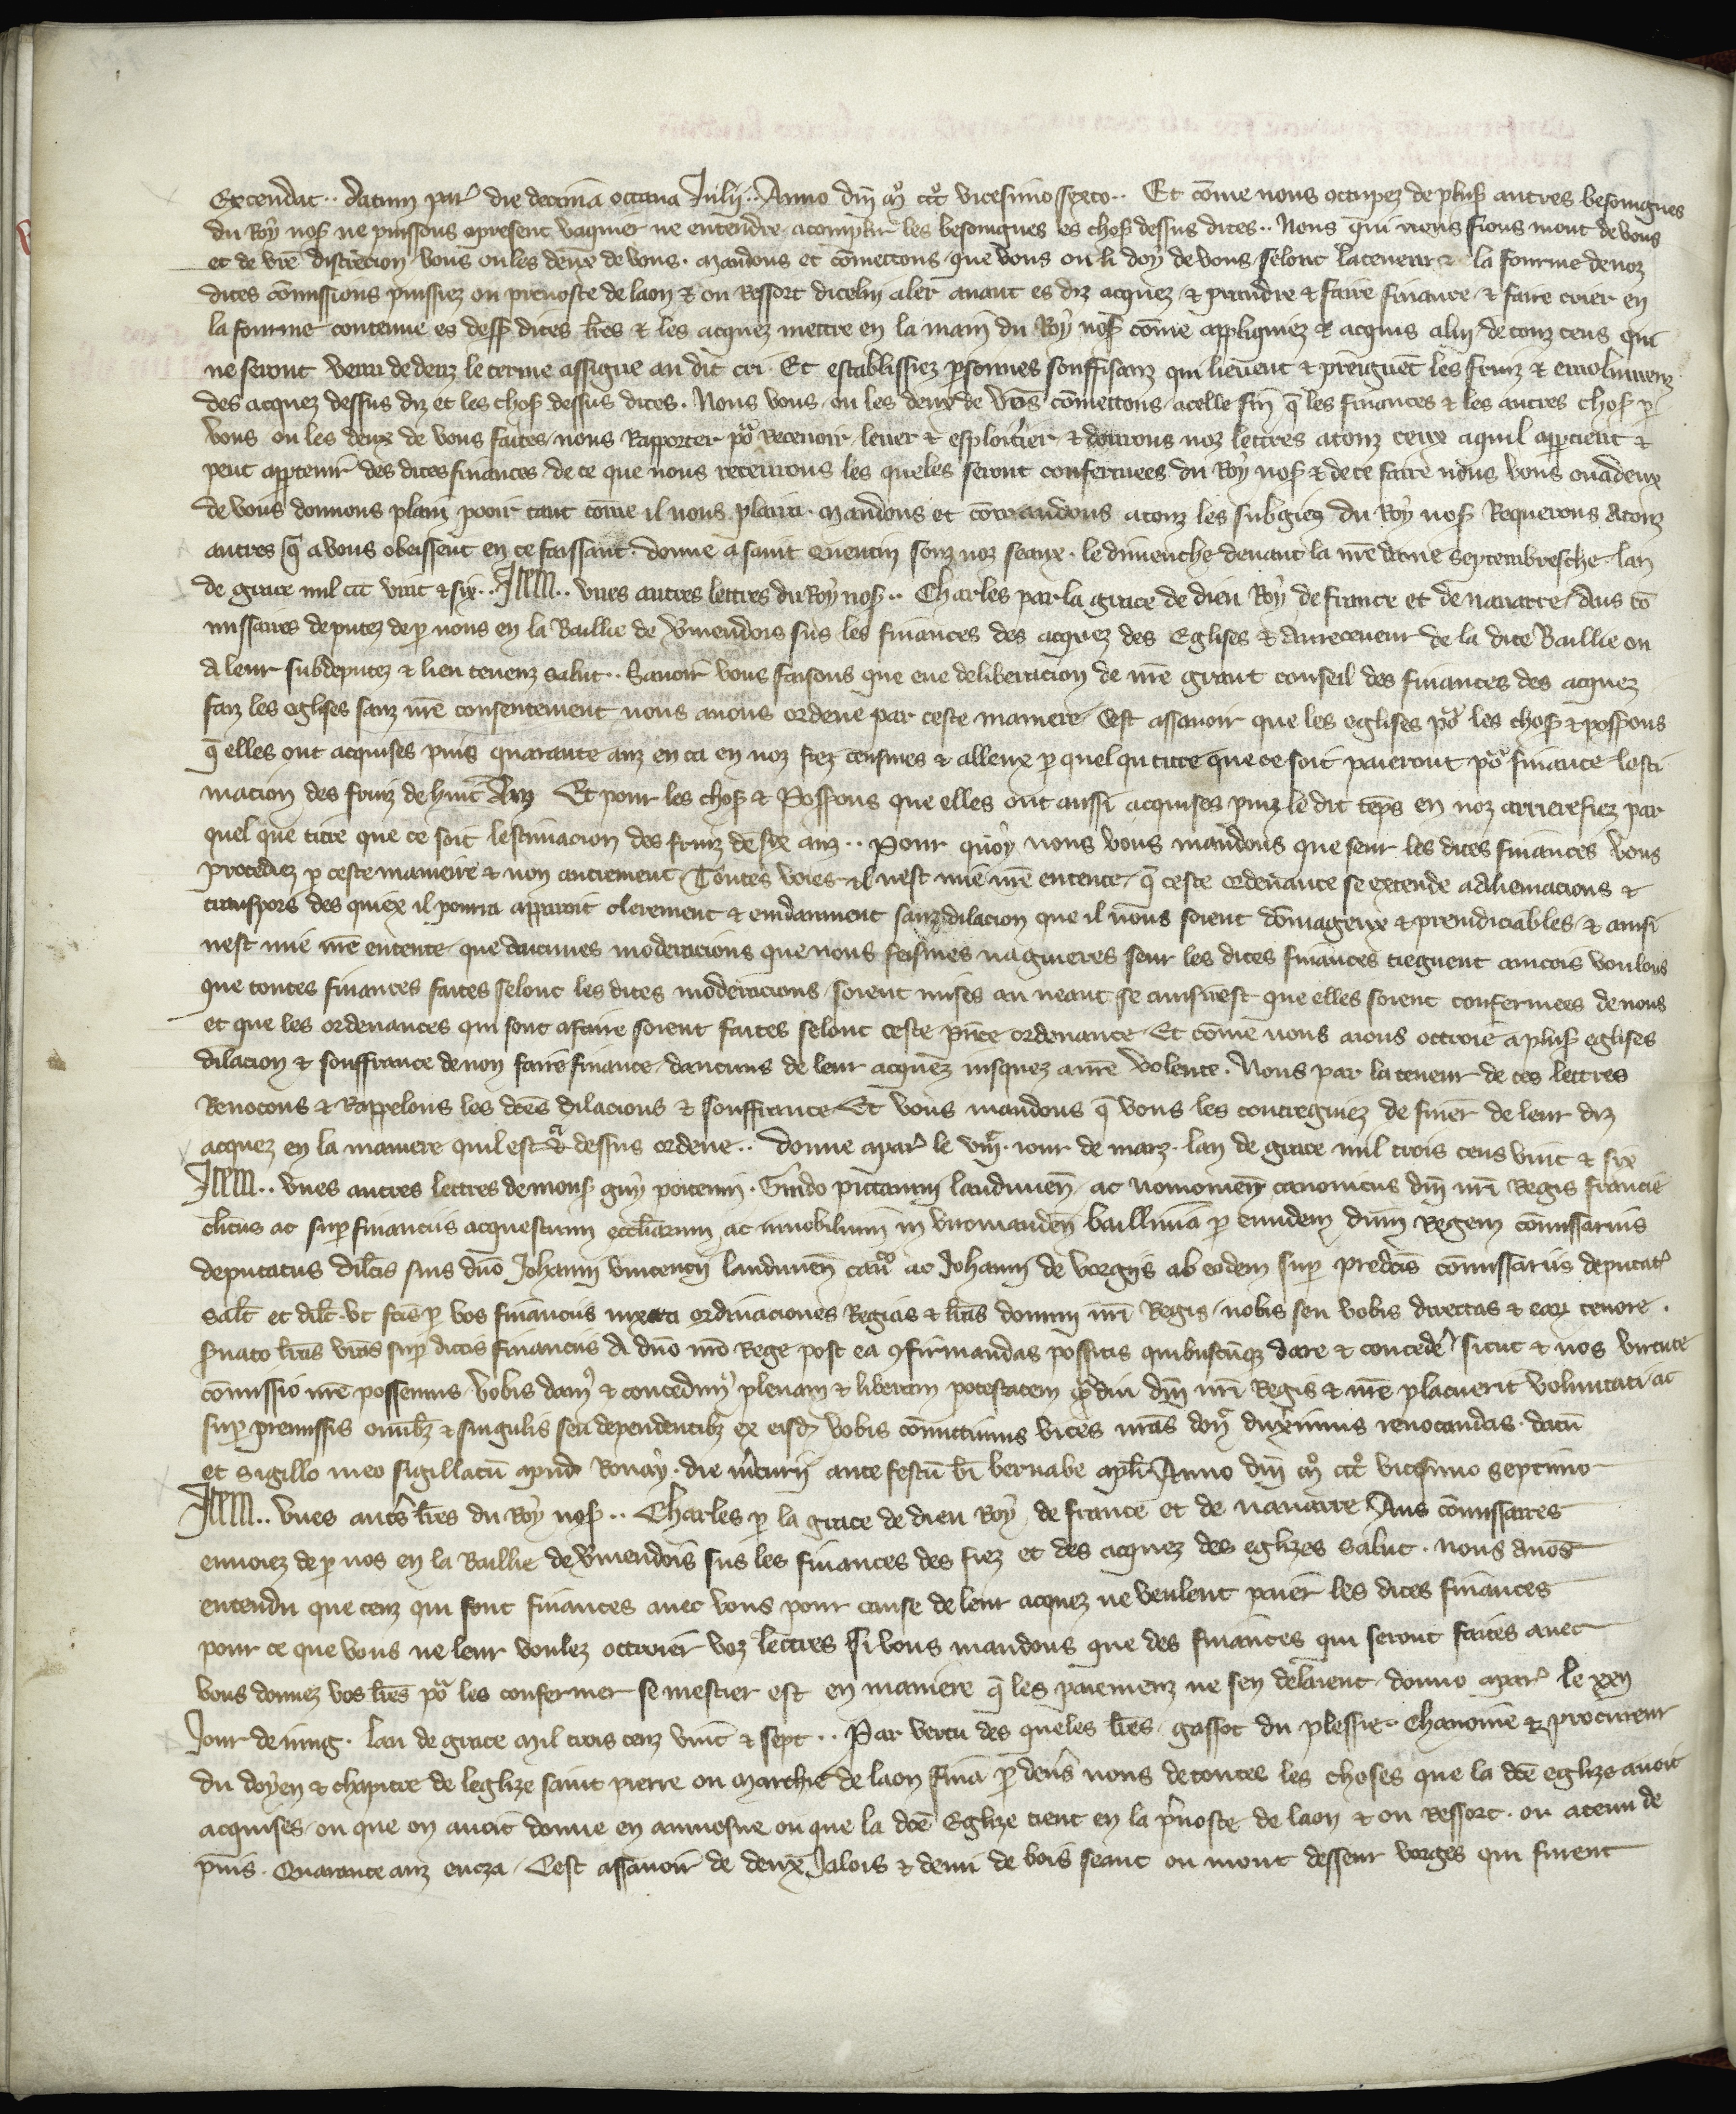 Extendat.. datum par̃ die decima octava Julij.. Anno dm̃ mo ccco vicesimo sexto.. Et cõme nous occupez de plus̃ autres besoingnes
du Roy nos̃ ne puissons apresent vaquier ne entendre acomplir les besoingnes es chos̃ dessus dites.. Nous qui nous fions mout de vous
et de vr̃e discrecion vous ou les deux de vous. mandons et cõmettons que vous ou li doy de vous selonc la teneur & la fourme de noz
dites cõmissions puissiez ou prevoste de laon & ou Ressort dicelui aler avant es diz acquez & prendre & faire finance & faire crier en
la fourme contenue es dess̃ dites lr̃es & les acquez mettre en la main du Roy nos̃ cõme appliquiez & acquis a lui de touz ceus qui
ne seront venu dedenz le terme assigne au dit cri. Et establissiez p̃sonnes souffisanz qui lievent & preignẽt les fruiz & emolumenz
des acquez dessus diz et les chos̃ dessus dites. Nous vous ou les deux de vo9 cõmettons a celle fin q̃ les finances & les autres chos̃ p̃
vous ou les deux de vous faites nous Rapporter põr Recevoir lever & esploitier & donrons noz lettres a touz ceux a qui il appartient &
peut appartenir des dites finances de ce que nous recevrons les queles seront confermees du Roy nos̃ & de ce faire nous vous ou a deux
de vous donnons plain pooir tant cõme il nous plaira. Mandons et cõmandons a touz les subgiez du Roy nos̃ Requerons a touz
autres q̃ a vous obeissent en ce faissant. donne a saint Quentin souz noz seaux. le dimenche devant la nr̃e dame septembresche lan
de grace mil ccc vint & six.. Item.. unes autres lettres du Roy nos̃.. Charles par la grace de dieu Roy de france et de navarre. Aus cõ
missaires deputez de p̃ nous en la Baillie de Vermendois sus les finances des acquez des Eglises & au receveur de la dite Baillie ou
a leur subdeputez & lieu tenenz salut.. Savoir vous faisons que eue deliberacion de nr̃e grant conseil des finances des acquez
faiz les eglises sanz nr̃e consentement nous avons ordene par ceste maniere. Cest assavoir que les eglises põr les chos̃ & poss̃ons
q̃ elles ont acquises puis quarante anz en ca en noz fiez censives & alleux p̃ quel qu titre que ce soit paieront põr finance lesti
macion des fruiz de huit Anz Et pour les chos̃ & Poss̃ons que elles ont aussi acquises puiz le dit tẽps en noz arrierefiez par
quel que titre que ce soit lestimacion des fruiz de six anz.. Pour quoy nous vous mandons que seur les dites finances vous
procediez p̃ ceste maniere & non autrement. Toutes voies il nest mie nr̃e entente q̃ ceste ordenance se extende a alienacions &
transpors des quiex il pourra apparoir clerement & evidanment sanz dilacion que il nous soient dõmageux & preiudiciables & ainsi
nest mie nr̃e entente que daucunes moderacions que nous feismes nagaieres seur les dites finances tiegnent aincois voulons
que toutes finances faites selonc les dites moderacions soient mises au neant se ainsi nest que elles soient confermees de nous
et que les ordenances qui sont a faire soient faites selonc ceste pñte ordenance. Et cõme nous aions ottroie a plus̃ eglises
dilacion & souffrance de non faire finance daucuns de leur acquez iusquez a nr̃e volente. Nous par la teneur de ces lettres
Revocons & Rappelons les dc̃es dilacions & souffrance Et vous mandons q̃ vous les contregniez de finer de leur diz
acquez en la maniere quil est dessus ordene.. donne a par̃ le viijme. iour de marz. lan de grace mil trois cens vint & six
Item.. unes autres lettres de mons̃ guy poitevin. Guido pictavini laudunen̄ ac noviomen̄ canonicus dm̃ nr̃i Regis francie
clericus ac sup̃ financiis acquestuum eccliarum ac innobilium in viromanden̄ bailliviã p̃ eundem dnm̃ Regem cõmissarius
deputatus dilc̃is suis dño Johanni vincencij laudunen̄ can̄co ac Johanni de vorgijs ab eodem sup̃ predc̃is cõmissariis deputat̃
salt̃ et dilc̃. ut fc̃is p̃ vos financiis iuxta ordinaciones Regias & lr̃as domini nr̃i Regis nobis seu vobis directas & eaȝ tenore.
s̃vato lr̃as vr̃as sup̃ dictis financiis A dño nr̃o Rege post ea 9firmandas possitis quibuscũqȝ dare & concedẽ sicut & nos virtute
cõmissio nr̃e possemus vobis dam9 & concedim9 plenam & liberam potestatem q̃diu dm̃ nr̃i Regis & nr̃e placuerit voluntati ac
sup̃ premissis om̃ibȝ & singulis seu dependentibȝ ex eisd̃ vobis cõmittimus vices nr̃as don̄ duxerimus revocandas. datũ
et sigillo meo sigillatũ apud Rouay. die m̃curij ante festũ bt̃i bernabe apl̃i Anno dm̃ mo ccco vicesimo septimo
Item.. unes autr̃s lr̃es du Roy nos̃.. Charles p̃ la grace de dieu Roy de france et de navarre Aus cõmissaires
envoiez de p̃ nos en la Baillie de Vermendois sus les finances des fiez et des acquez des eglizes salut. nous avõs
entendu que cenz qui font finances avec vous pour cause de leur acquez ne veulent paier les dites finances
pour ce que vous ne leur voulez ottroier voz lettres Si vous mandons que des finances qui seront faites avec
vous donnez vos lr̃es põr les confermer se mestier est en maniere q̃ les paiemenz ne sen delaient. donne a par̃ le xxij
Jour de iuing. lan de grace mil trois cenz vint & sept.. Par vertu des queles lr̃es gassot du plessie. Chanoine & procureur
du doyen & chapitre de leglize saint pierre ou marchie de laon fina p̃ devs̃ nous de toutes les choses que la dc̃e eglize avoit
acquises ou que on avoit donne en aumosne ou que la dc̃e Eglize tient en la p̃voste de laon & ou Ressort. ou a tenu de
puis. Quarante anz encza. Cest assavoir de deux Jalois & demi de bois seant ou mont desseur vorges qui furent